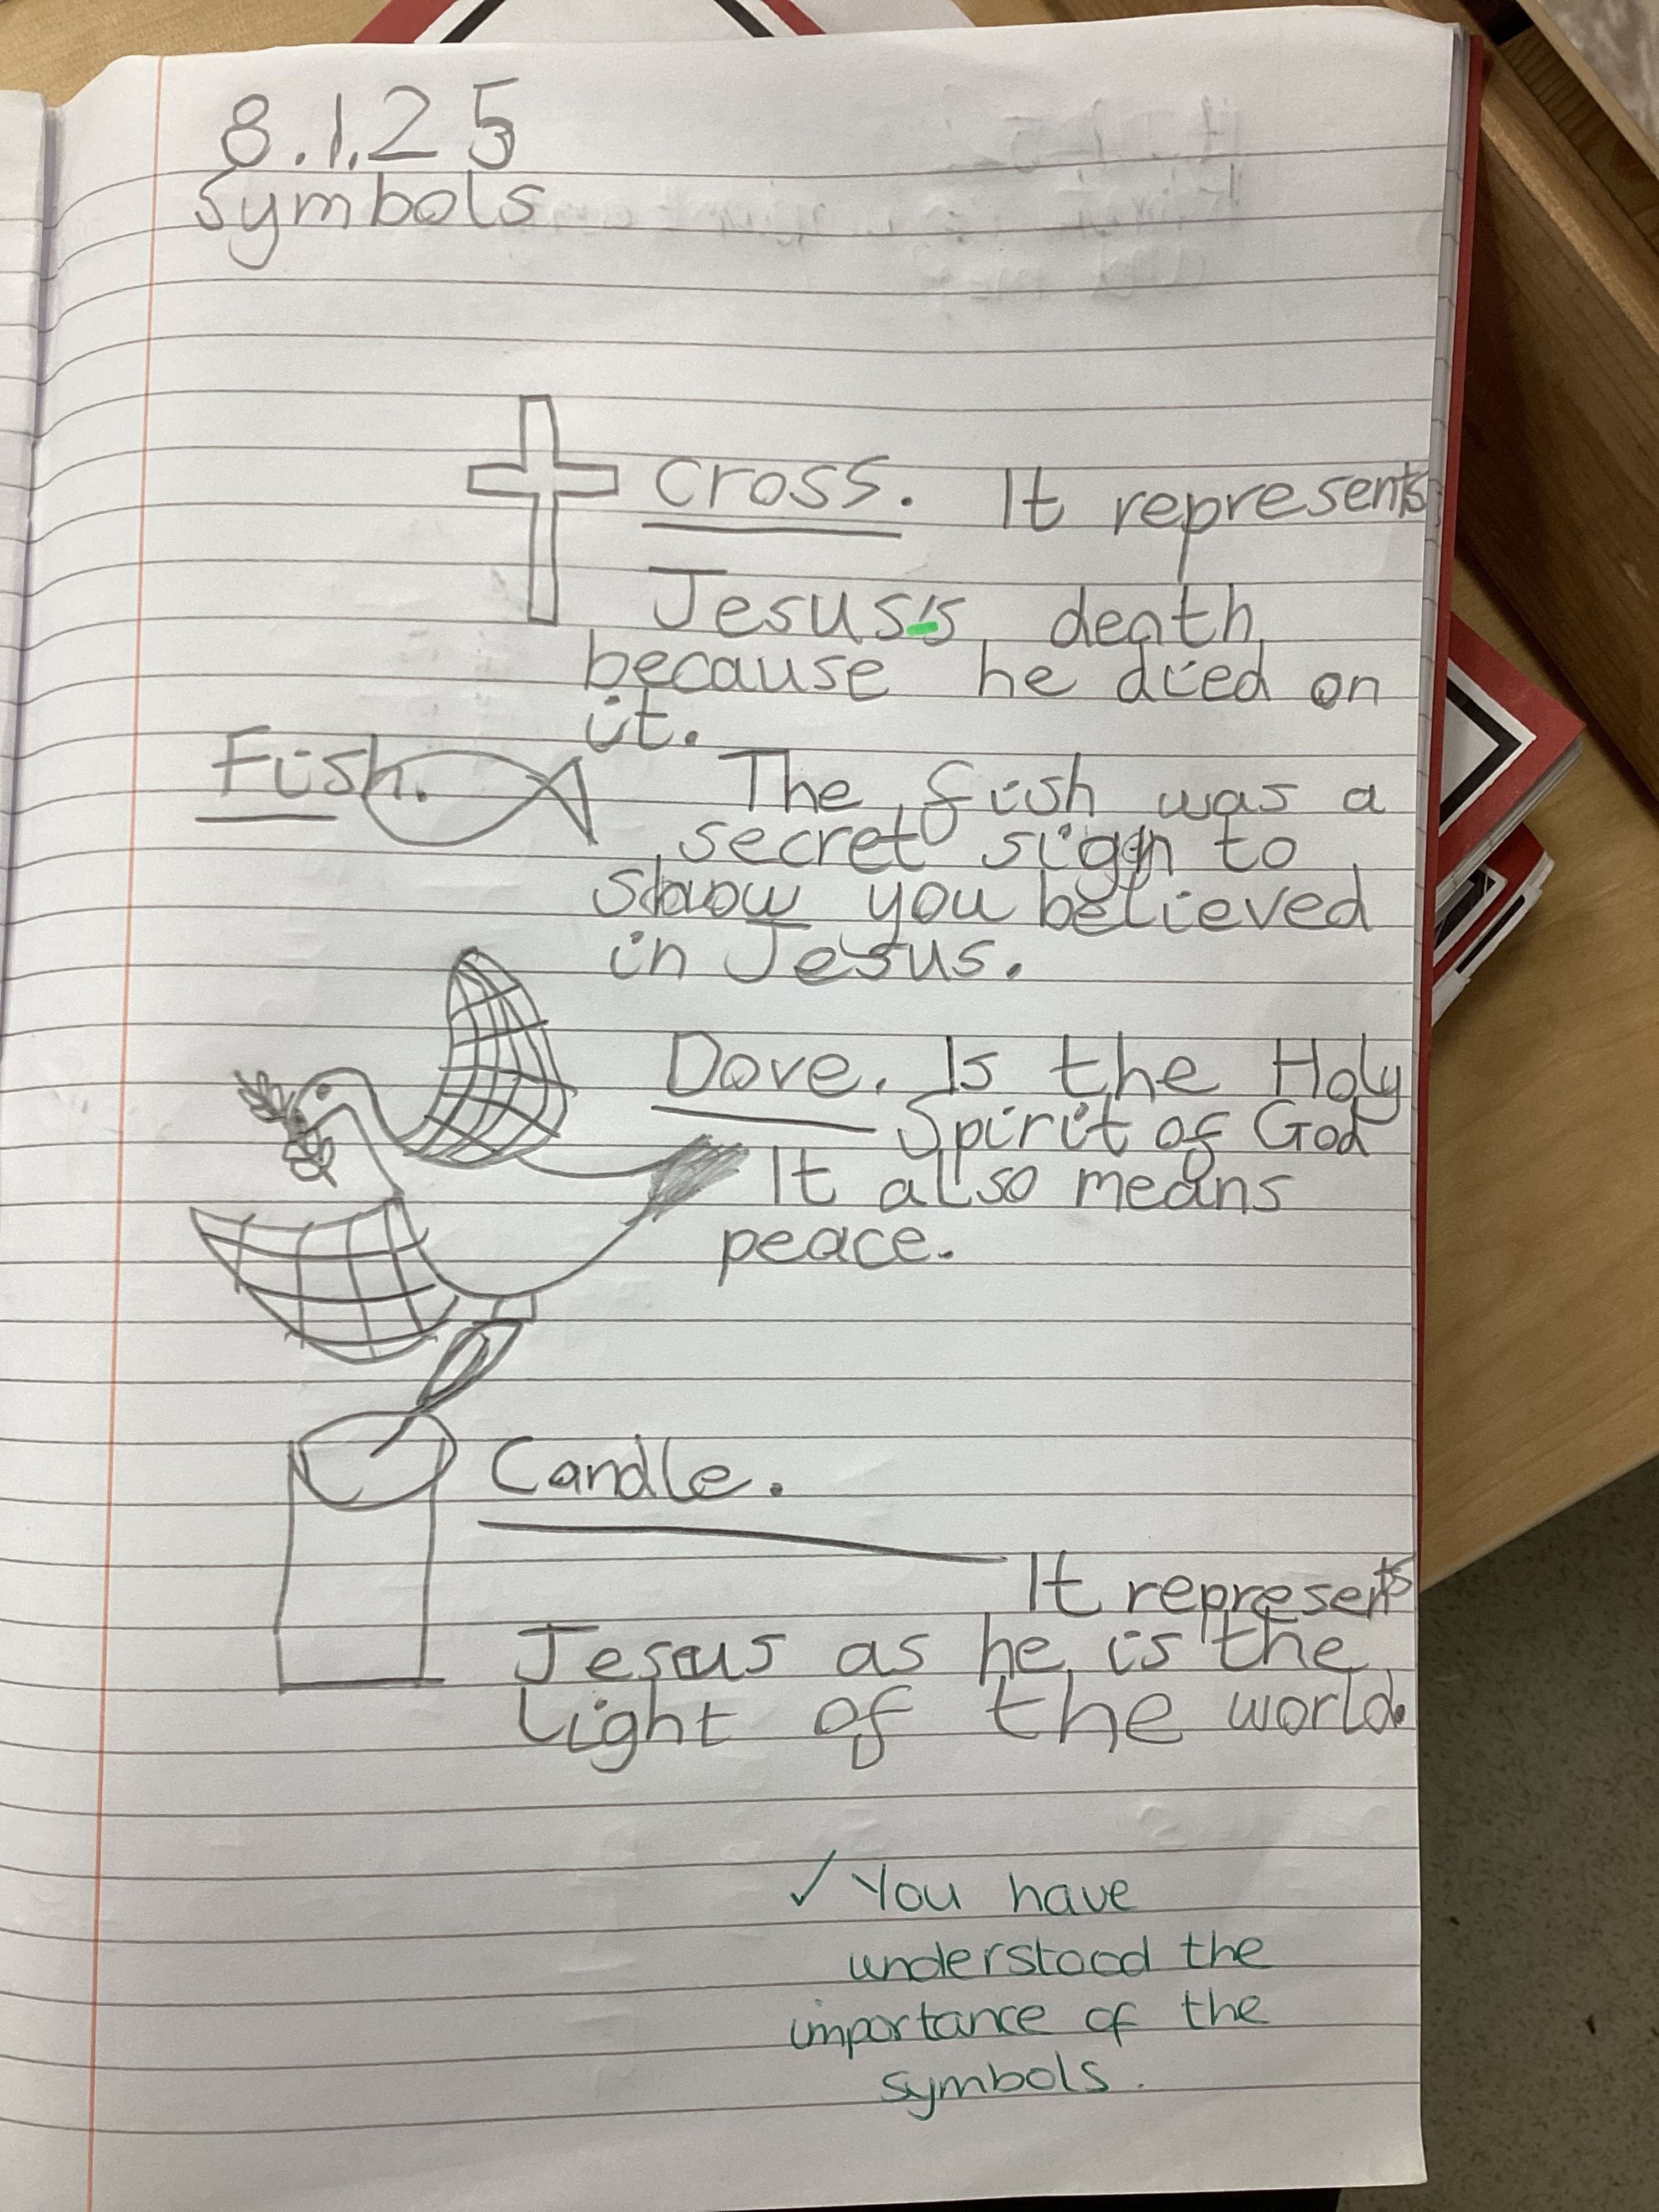 8.1.25
Symbols
Cross. It represents
Jesus's death
because he died on
it.
Fish. The fish was a
secret sign to
show you believed
in Jesus.
Dove. Is the Holy
Spirit of God
It also means
peace.
Candle.
It represents
Jesus as he is the
light of the world.
✓ You have
understood the
importance of the
symbols.